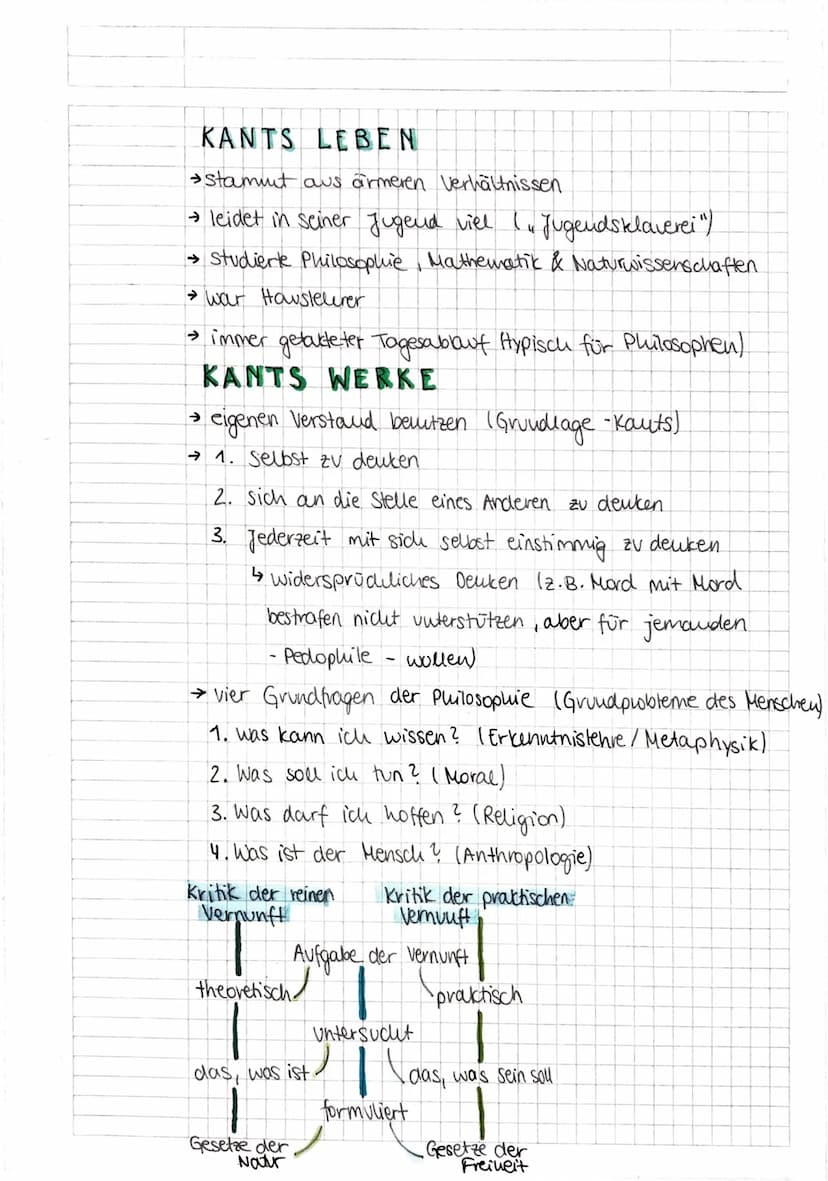 KANTS LEBEN
→ stammt aus ärmeren Verhältnissen
→ leidet in seiner Jugend viel („Jugendsklaverei")
→ studierte Philosophie, Mathematik & Naturwissenschaften
→ war Hauslehrer
→ immer getakteter Tagesablauf (typisch für Philosophen)
KANTS WERKE
→ eigenen Verstand benutzen (Grundlage - Kants)
→ 1. Selbst zu denken
2. sich an die Stelle eines Anderen zu denken
3. Jederzeit mit sich selbst einstimmig zu denken
↳ widersprüchliches Denken (z.B. Mord mit Mord
bestrafen nicht unterstützen, aber für jemanden
- Pedophile - wollen)
→ vier Grundfragen der Philosophie (Grundprobleme des Menschen)
1. was kann ich wissen? (Erkenntnislehre / Metaphysik)
2. Was soll ich tun? (Moral)
3. Was darf ich hoffen? (Religion)
4. Was ist der Mensch? (Anthropologie)
Kritik der reinen Kritik der praktischen
Vernunft Vernunft
Aufgabe der Vernunft
theoretisch praktisch
untersucht
das, was ist das, was sein soll
formuliert
Gesetze der Gesetze der
Natur Freiheit